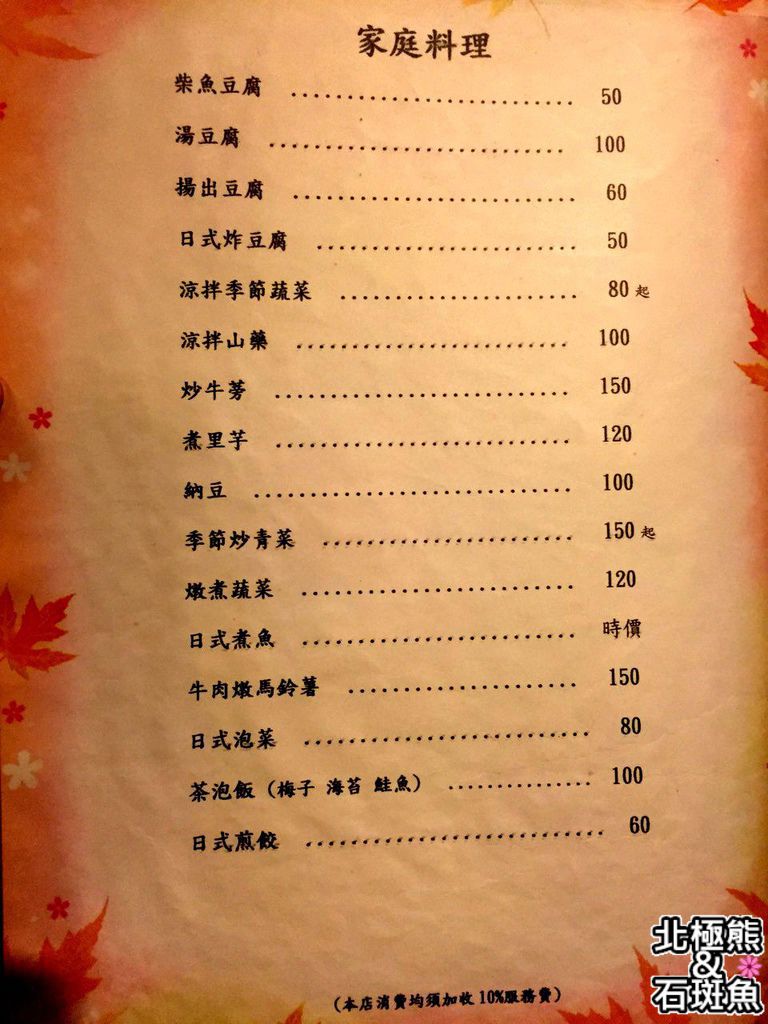 家庭料理
柴魚豆腐 ........................ 50
湯豆腐 ........................ 100
揚出豆腐 ........................ 60
日式炸豆腐 ...................... 50
涼拌季節蔬菜 .................... 80 起
涼拌山藥 ....................... 100
炒牛蒡 ......................... 150
煮里芋 ......................... 120
納豆 ........................... 100
季節炒青菜 ..................... 150 起
燉煮蔬菜 ....................... 120
日式煮魚 ....................... 時價
牛肉燉馬鈴薯 ................... 150
日式泡菜 ........................ 80
茶泡飯 (梅子 海苔 鮭魚) ............ 100
日式煎餃 ......................... 60
(本店消費均須加收10%服務費)
北極熊
&
石斑魚